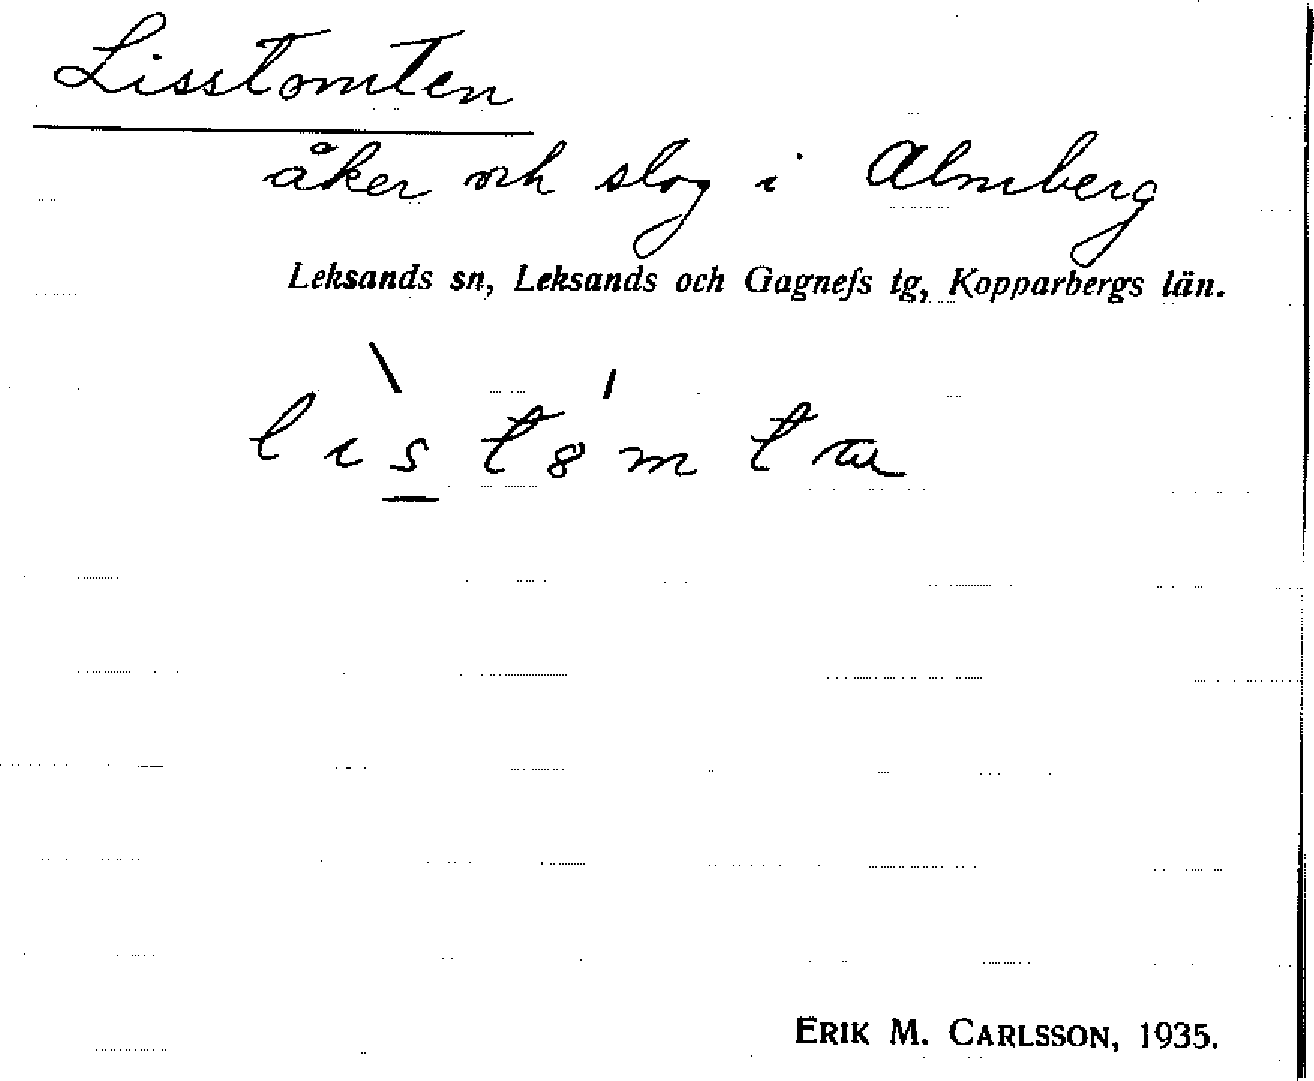 Lisstomten
åker och slog i Almberg
Leksands sn, Leksands och Gagnefs tg, Kopparbergs län.
ERIK M. CARLSSON, 1935.